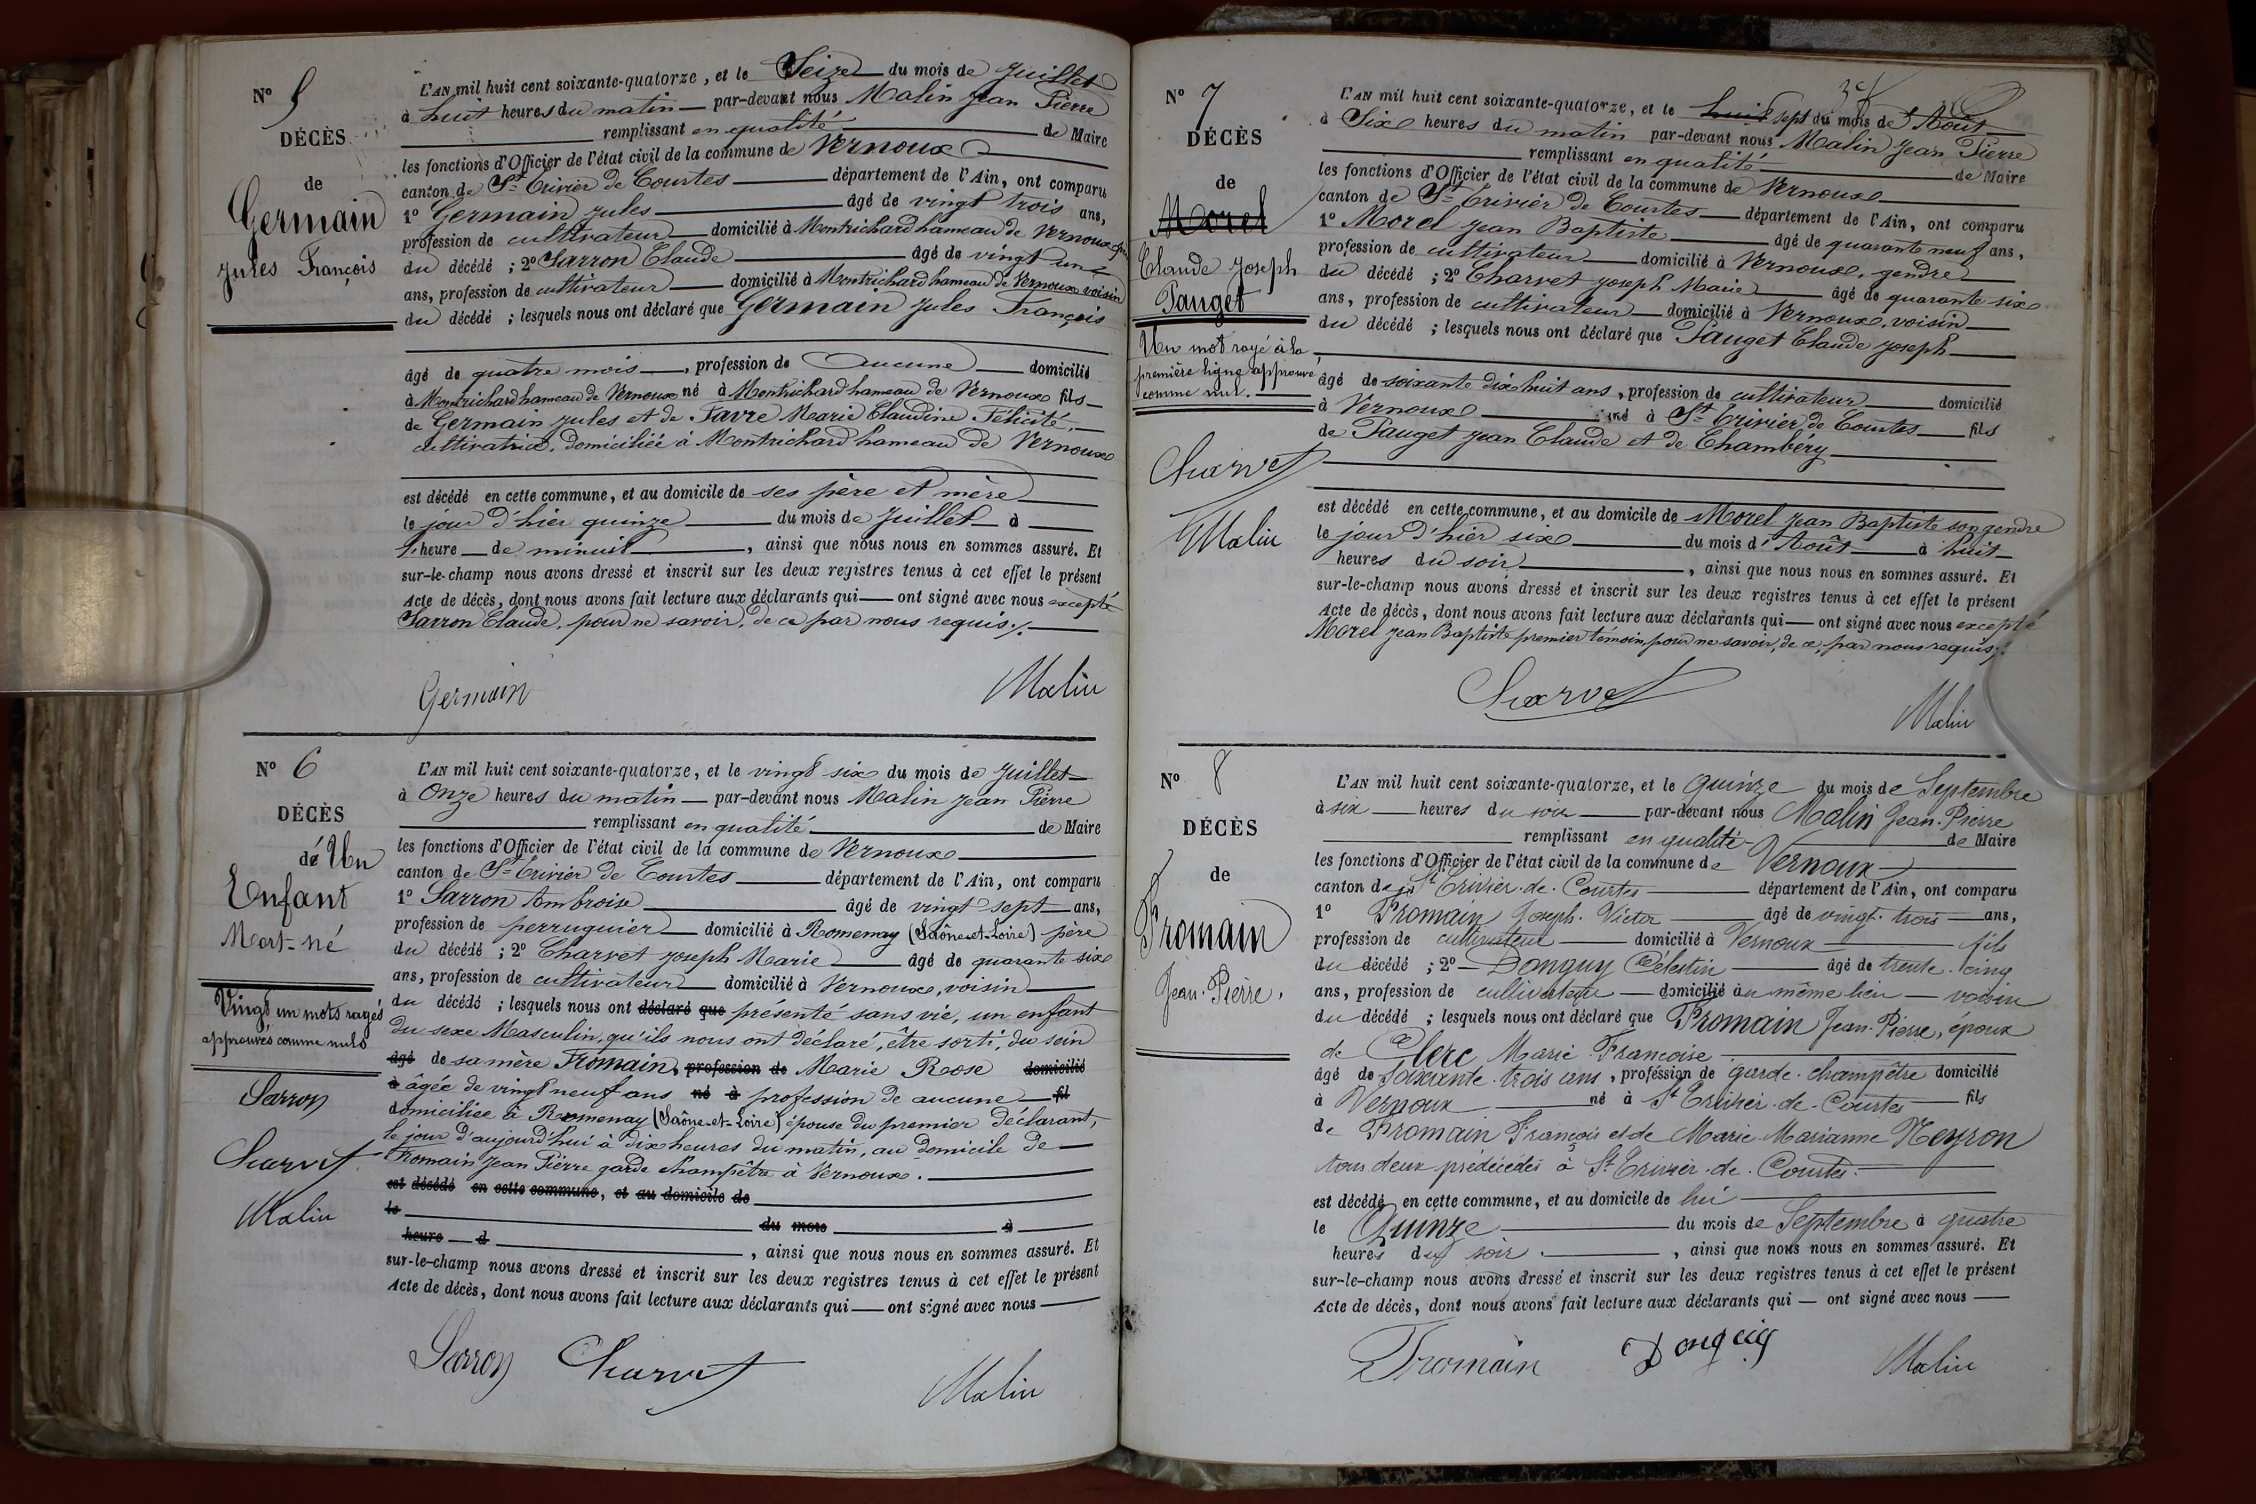 N° 5
DÉCÈS
de
Germain
Jules François
L'AN mil huit cent soixante-quatorze, et le Seize du mois de Juillet
à huit heures du matin par-devant nous Malin Jean Pierre
remplissant en qualité de Maire
les fonctions d'Officier de l'état civil de la commune de Vernoux
canton de St Trivier de Courtes département de l'Ain, ont comparu
1° Germain Jules âgé de vingt trois ans,
profession de cultivateur domicilié à Montrichard hameau de Vernoux
du décédé ; 2° Sarron Claude âgé de vingt un
ans, profession de cultivateur domicilié à Montrichard hameau de Vernoux voisin
du décédé ; lesquels nous ont déclaré que Germain Jules François
âgé de quatre mois, profession de Aucune domicilié
à Montrichard hameau de Vernoux né à Montrichard hameau de Vernoux fils
de Germain Jules et de Favre Marie Claudine Félicité,
cultivatrice, domiciliée à Montrichard hameau de Vernoux
est décédé en cette commune, et au domicile de ses père et mère
le jour d'hier quinze du mois de Juillet à
l'heure de minuit, ainsi que nous nous en sommes assuré. Et
sur-le-champ nous avons dressé et inscrit sur les deux registres tenus à cet effet le présent
Acte de décès, dont nous avons fait lecture aux déclarants qui ont signé avec nous excepté
Sarron Claude, pour ne savoir, de ce par nous requis ./.
Germain Malin
N° 6
DÉCÈS
dé Un
Enfant
Mort-né
Vingt un mots rayés
approuvés comme nuls
Sarron
Charvet
Malin
L'AN mil huit cent soixante-quatorze, et le vingt six du mois de Juillet
à Onze heures du matin par-devant nous Malin Jean Pierre
remplissant en qualité de Maire
les fonctions d'Officier de l'état civil de la commune de Vernoux
canton de St Trivier de Courtes département de l'Ain, ont comparu
1° Sarron Ambroise âgé de vingt sept ans,
profession de perruquier domicilié à Romenay (Saône-et-Loire) père
du décédé ; 2° Charvet Joseph Marie âgé de quarante six
ans, profession de cultivateur domicilié à Vernoux, voisin
du décédé ; lesquels nous ont déclaré que présenté sans vie, un enfant
du sexe Masculin, qu'ils nous ont déclaré, être sorti, du sein
âgé de sa mère Fromain, profession de Marie Rose domicilié
à âgée de vingt neuf ans né à profession de aucune fil
domiciliée à Romenay (Saône-et-Loire) épouse du premier déclarant,
le jour d'aujourd'hui à dix heures du matin, au domicile de
Fromain Jean Pierre garde champêtre à Vernoux.
est décédé en cette commune, et au domicile de
le du mois à
heure d, ainsi que nous nous en sommes assuré. Et
sur-le-champ nous avons dressé et inscrit sur les deux registres tenus à cet effet le présent
Acte de décès, dont nous avons fait lecture aux déclarants qui ont signé avec nous
Sarron Charvet Malin
N° 7
DÉCÈS
de
Morel
Claude Joseph
Pauget
Un mot rayé à la
première ligne approuvé
comme nul.
Charvet
Malin
L'AN mil huit cent soixante-quatorze, et le huit sept du mois d'Août
à Six heures du matin par-devant nous Malin Jean Pierre
remplissant en qualité de Maire
les fonctions d'Officier de l'état civil de la commune de Vernoux
canton de St Trivier de Courtes département de l'Ain, ont comparu
1° Morel Jean Baptiste âgé de quarante neuf ans,
profession de cultivateur domicilié à Vernoux, gendre
du décédé ; 2° Charvet Joseph Marie âgé de quarante six
ans, profession de cultivateur domicilié à Vernoux, voisin
du décédé ; lesquels nous ont déclaré que Pauget Claude Joseph
âgé de soixante dix huit ans, profession de cultivateur domicilié
à Vernoux né à St Trivier de Courtes fils
de Pauget Jean Claude et de Chambéry
est décédé en cette commune, et au domicile de Morel Jean Baptiste son gendre
le jour d'hier six du mois d'Août à huit
heures du soir, ainsi que nous nous en sommes assuré. Et
sur-le-champ nous avons dressé et inscrit sur les deux registres tenus à cet effet le présent
Acte de décès, dont nous avons fait lecture aux déclarants qui ont signé avec nous excepté
Morel Jean Baptiste premier témoin, pour ne savoir, de ce, par nous requis ./.
Charvet
Malin
N° 8
DÉCÈS
de
Fromain
Jean-Pierre.
L'AN mil huit cent soixante-quatorze, et le quinze du mois de Septembre
à six heures du soir par-devant nous Malin Jean-Pierre
remplissant en qualité de Maire
les fonctions d'Officier de l'état civil de la commune de Vernoux
canton de St Trivier-de-Courtes département de l'Ain, ont comparu
1° Fromain Joseph-Victor âgé de vingt-trois ans,
profession de cultivateur domicilié à Vernoux fils
du décédé ; 2° Donguy Célestin âgé de trente-cinq
ans, profession de cultivateur domicilié au même lieu voisin
du décédé ; lesquels nous ont déclaré que Fromain Jean-Pierre, époux
de Clerc Marie Françoise
âgé de soixante-trois ans, profession de garde-champêtre domicilié
à Vernoux né à St Trivier-de-Courtes fils
de Fromain François et de Marie-Marianne Neyron
tous deux prédécédés à St Trivier-de-Courtes.
est décédé en cette commune, et au domicile de lui
le Quinze du mois de Septembre à quatre
heures du soir, ainsi que nous nous en sommes assuré. Et
sur-le-champ nous avons dressé et inscrit sur les deux registres tenus à cet effet le présent
Acte de décès, dont nous avons fait lecture aux déclarants qui ont signé avec nous
Fromain Donguy Malin